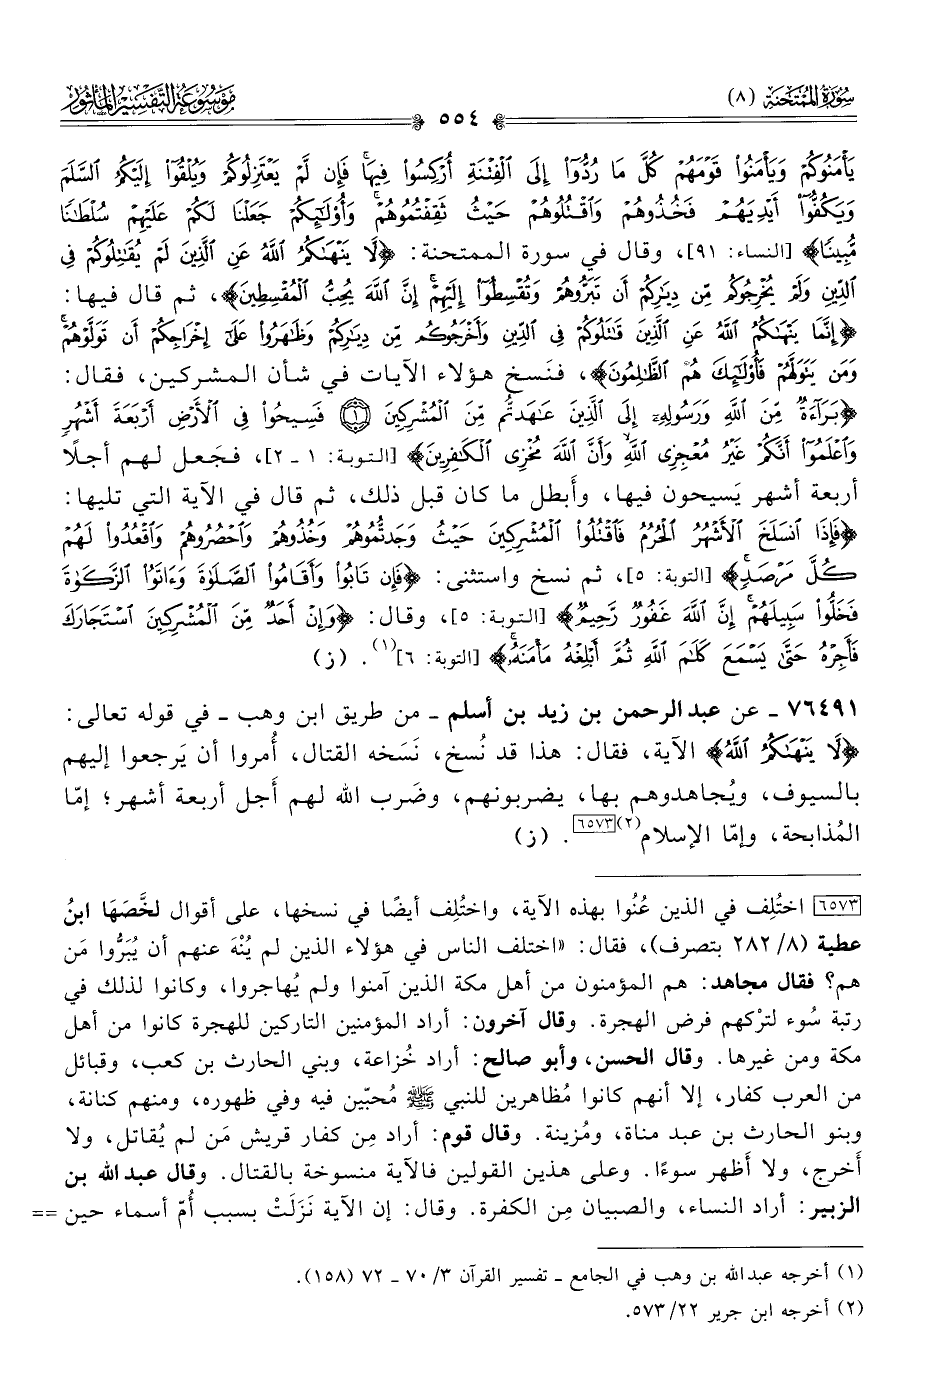 سورة الممتحنة (٨)
موسوعة التفسير المأثور
٥٥٤
يَأْمَنُوكُمْ وَيَأْمَنُوا۟ قَوْمَهُمْ كُلَّ مَا رُدُّوٓا۟ إِلَى ٱلْفِتْنَةِ أُرْكِسُوا۟ فِيهَا ۚ فَإِن لَّمْ يَعْتَزِلُوكُمْ وَيُلْقُوٓا۟ إِلَيْكُمُ ٱلسَّلَمَ
وَيَكُفُّوٓا۟ أَيْدِيَهُمْ فَخُذُوهُمْ وَٱقْتُلُوهُمْ حَيْثُ ثَقِفْتُمُوهُمْ ۚ وَأُو۟لَٰٓئِكُمْ جَعَلْنَا لَكُمْ عَلَيْهِمْ سُلْطَٰنًا
مُّبِينًا﴾ [النساء: ٩١]، وقال في سورة الممتحنة: ﴿لَّا يَنْهَىٰكُمُ ٱللَّهُ عَنِ ٱلَّذِينَ لَمْ يُقَٰتِلُوكُمْ فِى
ٱلدِّينِ وَلَمْ يُخْرِجُوكُم مِّن دِيَٰرِكُمْ أَن تَبَرُّوهُمْ وَتُقْسِطُوٓا۟ إِلَيْهِمْ ۚ إِنَّ ٱللَّهَ يُحِبُّ ٱلْمُقْسِطِينَ﴾، ثم قال فيها:
﴿إِنَّمَا يَنْهَىٰكُمُ ٱللَّهُ عَنِ ٱلَّذِينَ قَٰتَلُوكُمْ فِى ٱلدِّينِ وَأَخْرَجُوكُم مِّن دِيَٰرِكُمْ وَظَٰهَرُوا۟ عَلَىٰٓ إِخْرَاجِكُمْ أَن تَوَلَّوْهُمْ ۚ
وَمَن يَتَوَلَّهُمْ فَأُو۟لَٰٓئِكَ هُمُ ٱلظَّٰلِمُونَ﴾، فنَسخ هؤلاء الآيات في شأن المشركين، فقال:
﴿بَرَآءَةٌ مِّنَ ٱللَّهِ وَرَسُولِهِۦٓ إِلَى ٱلَّذِينَ عَٰهَدتُّم مِّنَ ٱلْمُشْرِكِينَ ۝١ فَسِيحُوا۟ فِى ٱلْأَرْضِ أَرْبَعَةَ أَشْهُرٍ
وَٱعْلَمُوٓا۟ أَنَّكُمْ غَيْرُ مُعْجِزِى ٱللَّهِ ۙ وَأَنَّ ٱللَّهَ مُخْزِى ٱلْكَٰفِرِينَ﴾ [التوبة: ١ ـ ٢]، فجعل لهم أجلًا
أربعة أشهر يَسيحون فيها، وأبطل ما كان قبل ذلك، ثم قال في الآية التي تليها:
﴿فَإِذَا ٱنسَلَخَ ٱلْأَشْهُرُ ٱلْحُرُمُ فَٱقْتُلُوا۟ ٱلْمُشْرِكِينَ حَيْثُ وَجَدتُّمُوهُمْ وَخُذُوهُمْ وَٱحْصُرُوهُمْ وَٱقْعُدُوا۟ لَهُمْ
كُلَّ مَرْصَدٍ ۚ﴾ [التوبة: ٥]، ثم نسخ واستثنى: ﴿فَإِن تَابُوا۟ وَأَقَامُوا۟ ٱلصَّلَوٰةَ وَءَاتَوُا۟ ٱلزَّكَوٰةَ
فَخَلُّوا۟ سَبِيلَهُمْ ۚ إِنَّ ٱللَّهَ غَفُورٌ رَّحِيمٌ﴾ [التوبة: ٥]، وقال: ﴿وَإِنْ أَحَدٌ مِّنَ ٱلْمُشْرِكِينَ ٱسْتَجَارَكَ
فَأَجِرْهُ حَتَّىٰ يَسْمَعَ كَلَٰمَ ٱللَّهِ ثُمَّ أَبْلِغْهُ مَأْمَنَهُۥ ۚ﴾ [التوبة: ٦](١). (ز)
٧٦٤٩١ ـ عن عبد الرحمن بن زيد بن أسلم ـ من طريق ابن وهب ـ في قوله تعالى:
﴿لَّا يَنْهَىٰكُمُ ٱللَّهُ﴾ الآية، فقال: هذا قد نُسخ، نَسَخه القتال، أُمروا أن يَرجعوا إليهم
بالسيوف، ويُجاهدوهم بها، يضربونهم، وضَرب الله لهم أجل أربعة أشهر؛ إمّا
المُذابحة، وإمّا الإسلام(٢)[٦٥٧٣]. (ز)
[٦٥٧٣] اختُلِف في الذين عُنُوا بهذه الآية، واختُلِف أيضًا في نسخها، على أقوال لخَّصَهَا ابنُ
عطية (٨/ ٢٨٢ بتصرف)، فقال: «اختلف الناس في هؤلاء الذين لم يُنْهَ عنهم أن يُبَرُّوا مَن
هم؟ فقال مجاهد: هم المؤمنون من أهل مكة الذين آمنوا ولم يُهاجروا، وكانوا لذلك في
رتبة سُوء لترْكهم فرض الهجرة. وقال آخرون: أراد المؤمنين التاركين للهجرة كانوا من أهل
مكة ومن غيرها. وقال الحسن، وأبو صالح: أراد خُزاعة، وبني الحارث بن كعب، وقبائل
من العرب كفار، إلا أنهم كانوا مُظاهرين للنبي ﷺ مُحبّين فيه وفي ظهوره، ومنهم كنانة،
وبنو الحارث بن عبد مناة، ومُزينة. وقال قوم: أراد مِن كفار قريش مَن لم يُقاتل، ولا
أَخرج، ولا أَظهر سوءًا. وعلى هذين القولين فالآية منسوخة بالقتال. وقال عبد الله بن
الزبير: أراد النساء، والصبيان مِن الكفرة. وقال: إن الآية نَزَلَتْ بسبب أُمّ أسماء حين ==
(١) أخرجه عبد الله بن وهب في الجامع ـ تفسير القرآن ٣/ ٧٠ ـ ٧٢ (١٥٨).
(٢) أخرجه ابن جرير ٢٢/ ٥٧٣.